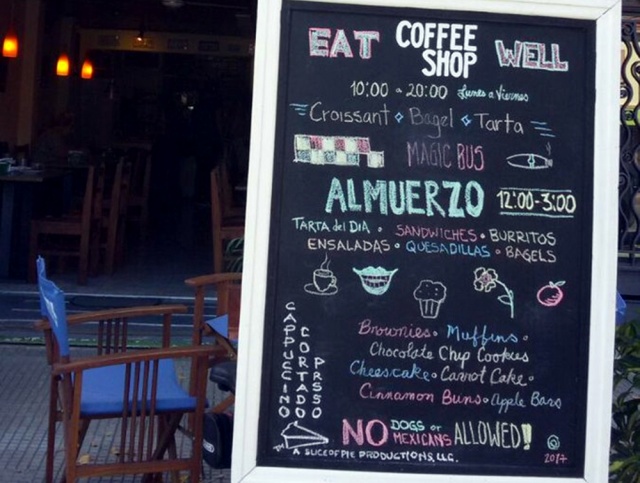 EAT COFFEE SHOP WELL
10:00 a 20:00 Lunes a Viernes
Croissant Bagel Tarta
MAGIC BUS
ALMUERZO 12:00-3:00
TARTA del DIA • SANDWICHES • BURRITOS
ENSALADAS • QUESADILLAS • BAGELS
CAPPUCCINO
CORTADO
PRSSO
Brownies • Muffins •
Chocolate Chip Cookies
Cheescake • Carrot Cake •
Cinnamon Buns • Apple Bars
NO DOGS or MEXICANS ALLOWED!
© 2017
TM A SLICE OF PIE PRODUCTIONS, LLC.